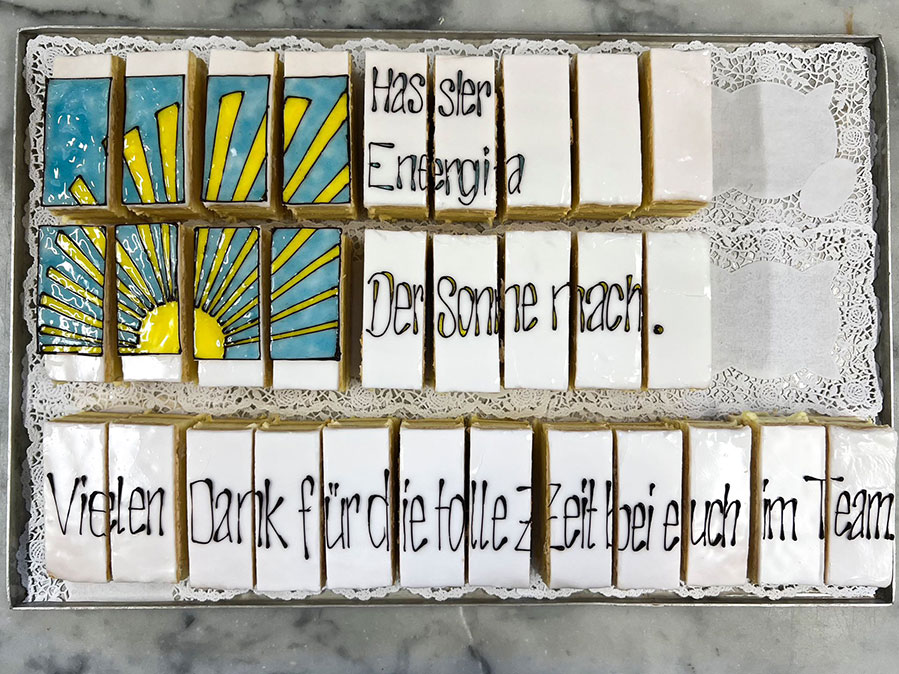 Hassler
Energia
Der Sonne nach.
Vielen Dank für die tolle Zeit bei euch im Team.